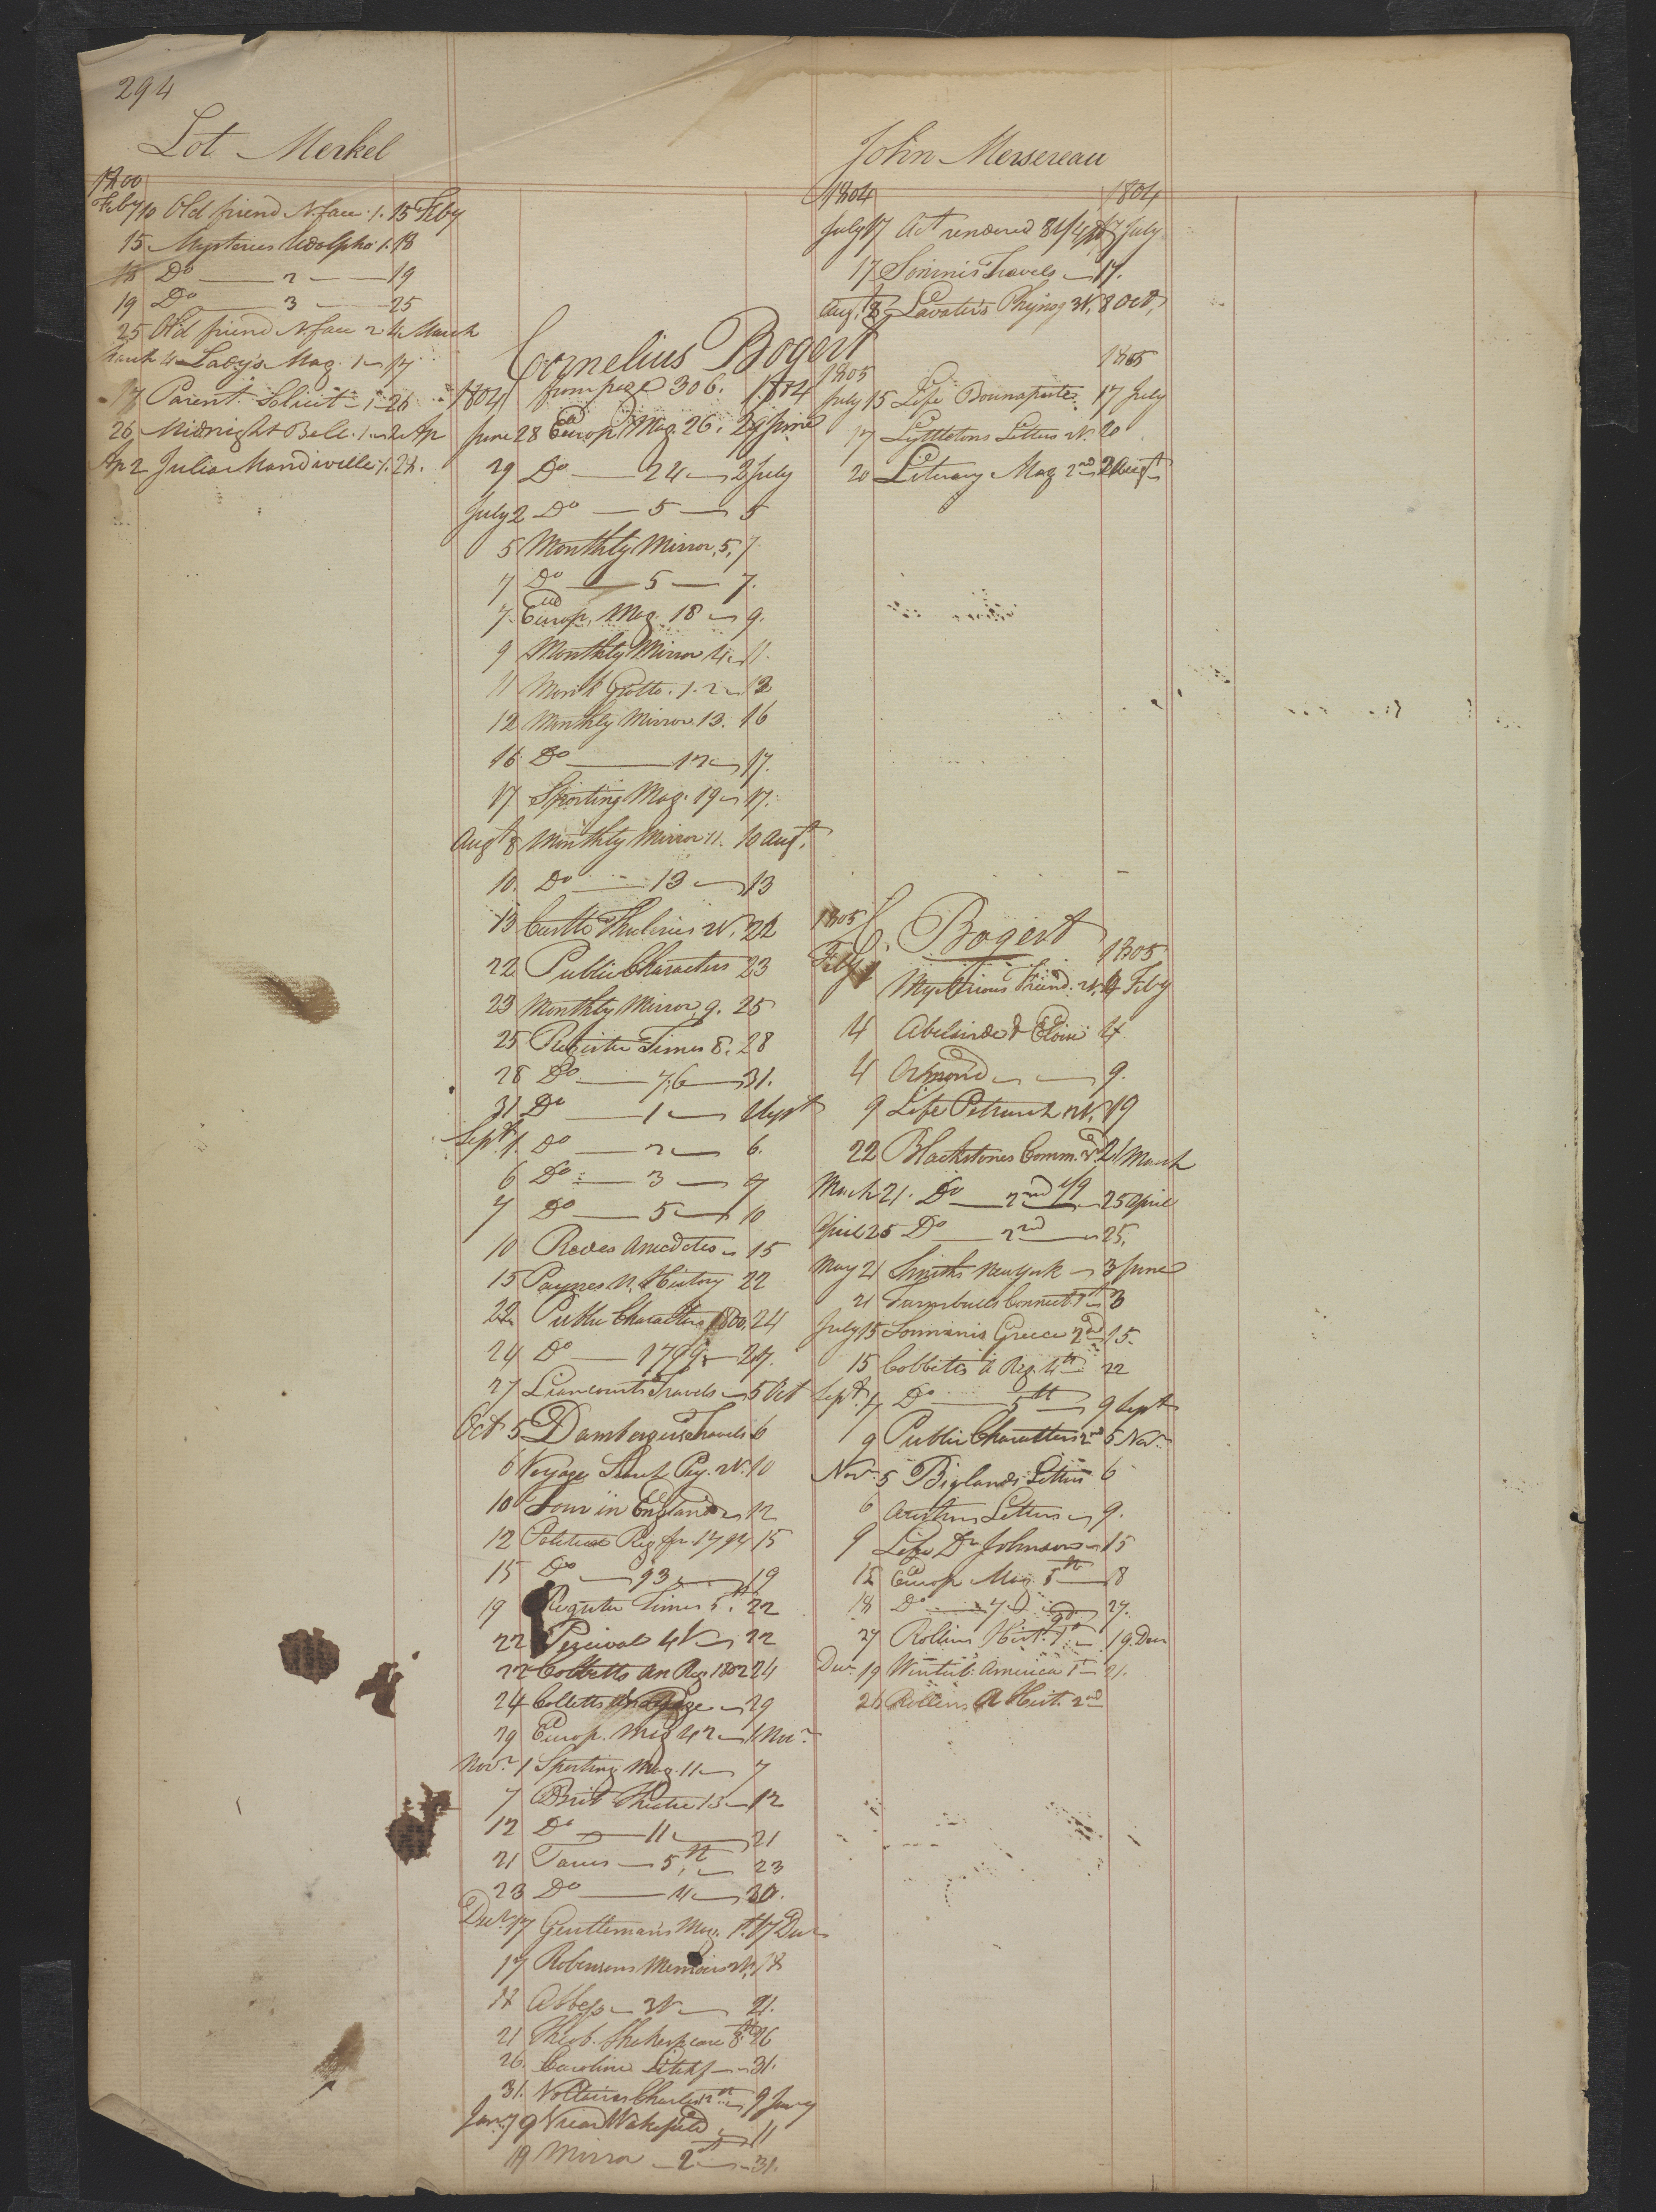 294
Lot Merkel
1800
Feby 10 Old friend N. face . 1. 15 Feby
15 Mysteries Udolpho 1. 18
18 Do — 2 — 19
19 Do — 3 — 25
25 Old friend N. face 2 4 March
March 4 Lady's Mag. 1 — 17
17 Parent Solicit — 1 — 26
26 Midnight Bell . 1 — 2 Ap
Ap 2 Julia Mandiville . 1. 28.
Cornelius Bogert
1804 from page 306. 1804
June 28 Europ. Mag. 26. 29 June
29 Do — 24 — 2 July
July 2 Do — 5 — 5
5 Monthly Mirror, 5, 7
7 Do — 5 — 7.
7. Europ. Mag. 18 — 9.
9 Monthly Mirror 4 — 11
11 Mont Grotto . 1. 2 — 12
12 Monthly Mirror 13. 16
16 Do — 12 — 17.
17 Sporting Mag. 19 — 17.
Augt 8 Monthly Mirror 11. 10 Augt.
10. Do — 13 — 13
13 Curtto 22
22 Public Characters 23
23 Monthly Mirror, 9. 25
25 Register Times 8. 28
28 Do — 7.6 — 31.
31 Do — 1 — 1 Sept
Sept. 1. Do — 2 — 6.
6 Do — 3 — 7
7 Do — 5 — 10
10 Anecdotes — 15
15 Paynes N. History 22
22 Public Characters 1800. 24
24 Do — 1799 — 27.
27 Liancourts Travels — 5 Oct
Oct 5 Dambergers Travels 6
6 Voyage 10
10 Tour in England — 12
12 Political Reg. for 1794 15
15 Do — 93 — 19
19 Register Times 5th. 22
22 Percival 4V — 22
22 Cobbetts An Reg 1802 24
24 Colletts — 29
29 Europ. Mag 42 — 1 Novr
Novr 1 Sporting Mag. 11 — 7
7 Brit Theatre 13 — 12
12 Do — 11 — 21
21 — 5th — 23
23 Do — 4 — 30.
Decr 17 Gentlemans Mag. 1st. 17 Decr
17 Robinsons Memoirs 2V. 18
18 Abbess — 3V — 21.
21 Theob. Shakespeare 8th 26
26. Caroline Litchf — 31.
31. 9 Jany
Jany 9 Vicar Wakefield — 11
19 Mirror — 2nd — 31.
John Mersereau
1804 1804
July 17 Act rendered 17 July
17 Sonninis Travels — 17.
Augt. 8 Lavaters Phyiog 3V. 8 Oct,
1805 1805
July 15 Life Bounaparte. 17 July
17 Lyttletons Letters 2V. 20
20 Literary Mag 2nd 2 Augt
1805 C. Bogert 1805
Feby 1 Mysterious Friend. 2V. 4 Feby
4 Abelairde & Eloise 4
4 Ormond — 9.
9 Life Petrarch 2V. 19
22 Blackstones Comm. 21 March
March 21. Do — 2nd — 25 April
April 25 Do — 2nd — 25.
May 21 Smiths New York — 3 June
21 Turnbulls Connect 1st — 3
July 15 Sonninis Greece 2nd 15.
15 Cobbetts A Reg. 4th 22
Sept. 7 Do — 5th — 9 Sept
9 Public Characters 2nd 5 Novr
Novr. 5 Biglands Letters 6
6 Letters — 9.
9 Life Dr Johnson — 15
15 Europ Mag 5th — 18
18 Do — 27.
27 Rollins Hist. 1st — 19 Decr
Decr 19 Winterb. America 1st — 21.
26 Rollins A Hist. 2nd